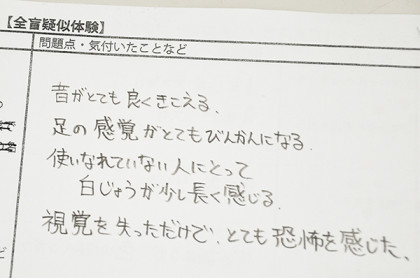 【全盲疑似体験】
問題点・気付いたことなど
音がとても良くきこえる、
足の感覚がとてもびんかんになる.
使いなれていない人にとって
白じょうが少し長く感じる.
視覚を失っただけで、とても恐怖を感じた、